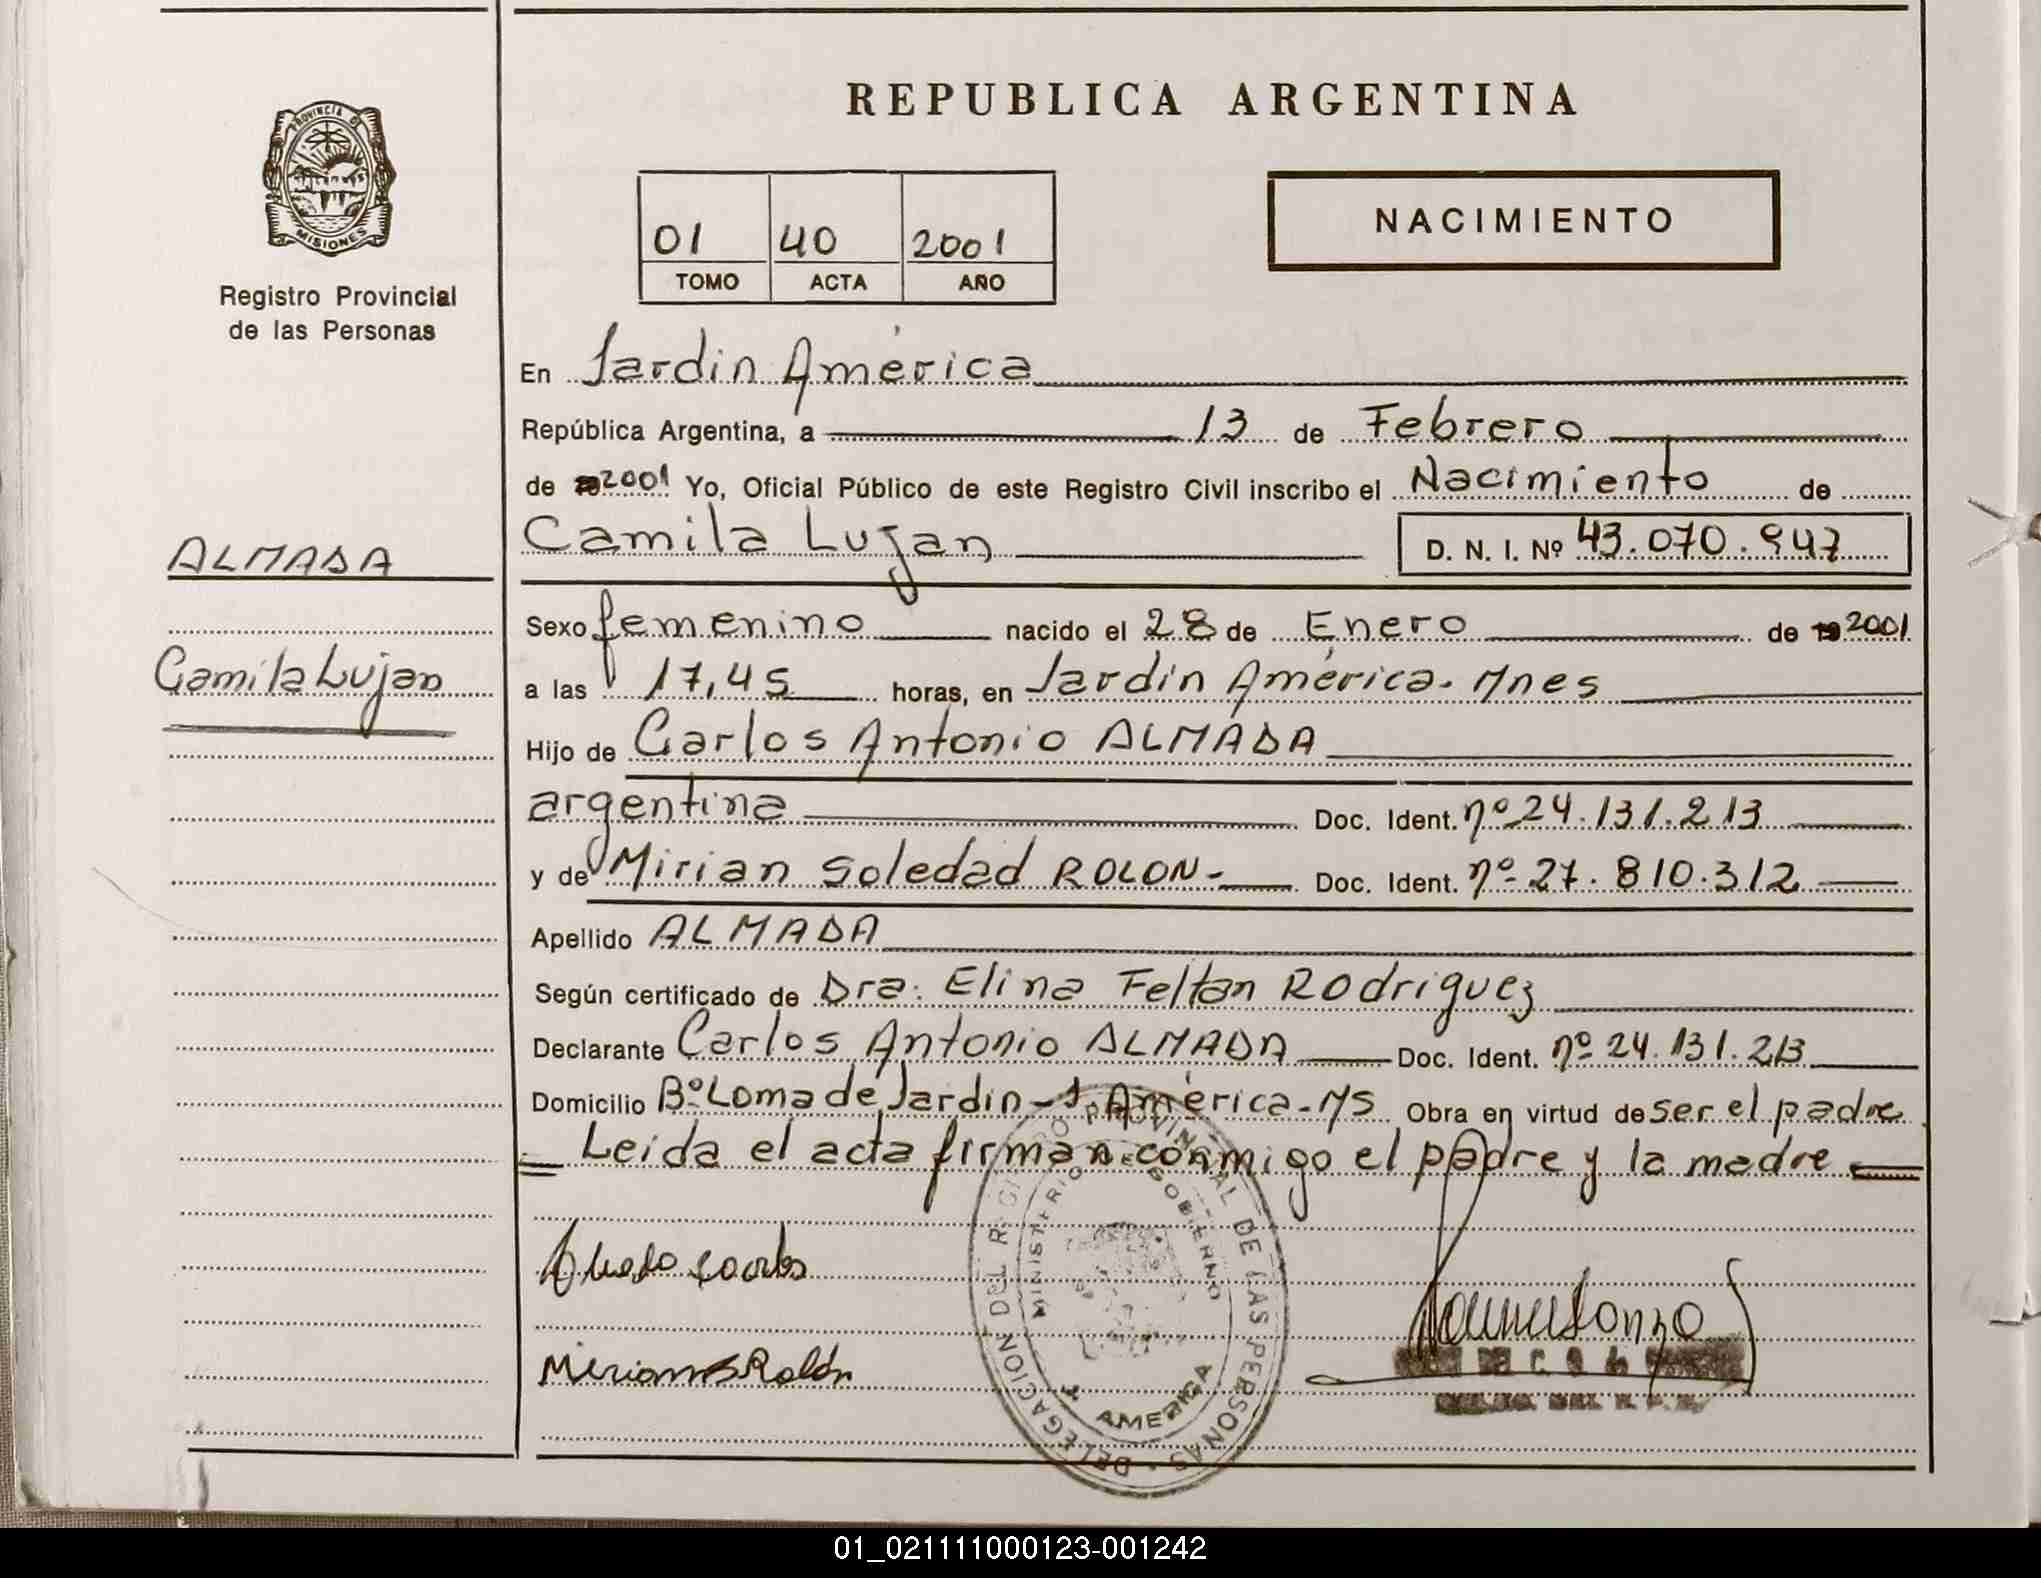 PROVINCIA DE
MISIONES
Registro Provincial
de las Personas
ALMADA
Camila Lujan
REPUBLICA ARGENTINA
01 40 2001
TOMO ACTA AÑO
NACIMIENTO
En Jardin América
República Argentina, a 13 de Febrero
de 2001 Yo, Oficial Público de este Registro Civil inscribo el Nacimiento de
Camila Lujan D. N. I. Nº 43.070.947
Sexo femenino nacido el 28 de Enero de 2001
a las 17,45 horas, en Jardin América. Mnes
Hijo de Carlos Antonio ALMADA
argentina Doc. Ident. nº 24.131.213
y de Mirian Soledad ROLON- Doc. Ident. nº 27.810.312
Apellido ALMADA
Según certificado de Dra. Elina Feltan Rodriguez
Declarante Carlos Antonio ALMADA Doc. Ident. nº 24.131.213
Domicilio Bº Loma de Jardin - J. América - Ms Obra en virtud de ser el padre
= Leida el acta firman conmigo el padre y la madre =
Mirian S Rolón
DELEGACION DEL REGISTRO PROVINCIAL DE LAS PERSONAS
MINISTERIO DE GOBIERNO
J. AMERICA
01_021111000123-001242